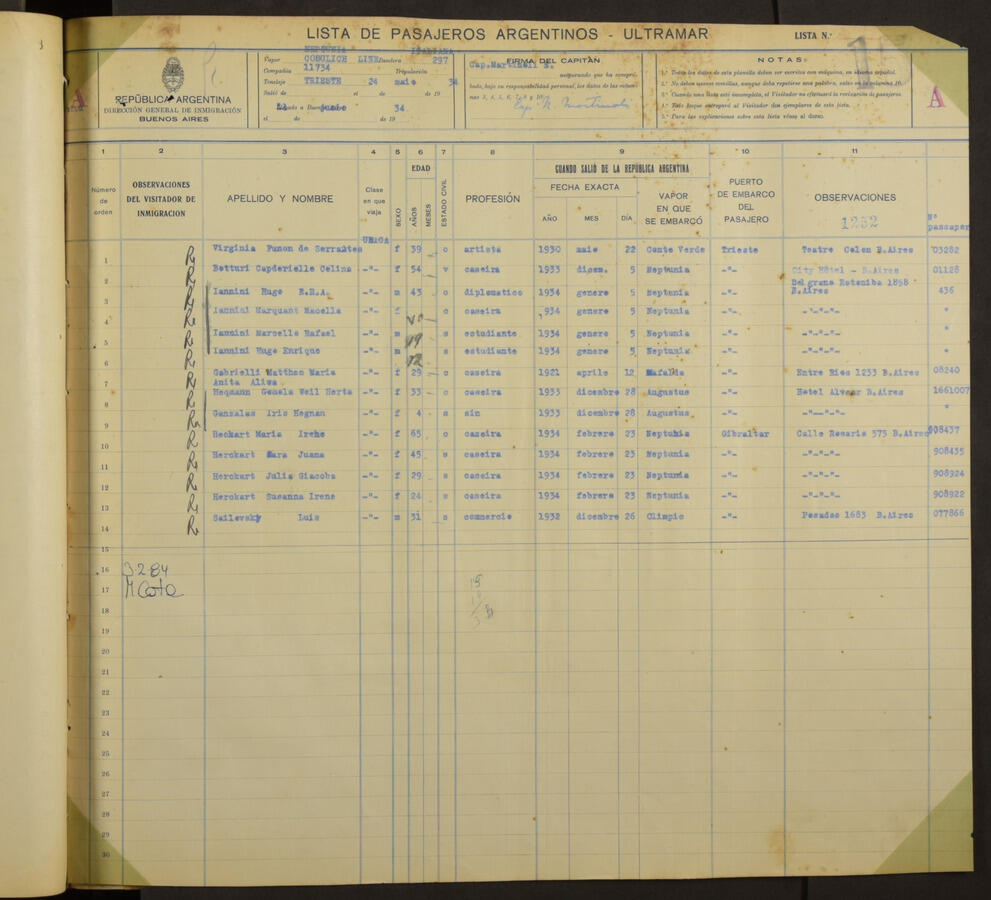 LISTA DE PASAJEROS ARGENTINOS - ULTRAMAR
LISTA N.º
REPÚBLICA ARGENTINA
DIRECCIÓN GENERAL DE INMIGRACIÓN
BUENOS AIRES
NEPTUNIA ITALIANA
Vapor COSULICH LINE Bandera 297
Compañía 11734 Tripulación
Tonelaje TRIESTE 24 maio 34
Salió de el de de 19
Llegado a Buenos Aires
12 junio 34
el de de 19
FIRMA DEL CAPITÁN
asegurando que ha compro-
bado, bajo su responsabilidad personal, los datos de las colum-
nas 3, 4, 5, 6, 7, 8 y 10.
NOTAS
1.ª Todos los datos de esta planilla deben ser escritos con máquina, en idioma español.
5.ª Para las explicaciones sobre esta lista véase al dorso.
A
A
1 2 3 4 5 6 7 8 9 10 11
Número de orden
OBSERVACIONES DEL VISITADOR DE INMIGRACION
APELLIDO Y NOMBRE
Clase en que viaja
SEXO
EDAD
AÑOS
MESES
ESTADO CIVIL
PROFESIÓN
CUANDO SALIÓ DE LA REPÚBLICA ARGENTINA
FECHA EXACTA
AÑO MES DÍA
VAPOR EN QUE SE EMBARCÓ
PUERTO DE EMBARCO DEL PASAJERO
OBSERVACIONES
1252
Nº passaper
UNICA
1 R Virginia Punon de Serrantes f 39 c artista 1930 maio 22 Conte Verde Trieste Teatre Colen B.Aires 03282
2 R Betturi Capderielle Celina -"- f 54 v caseira 1933 dicem. 5 Neptunia -"- City Hôtel - B.Aires 01128
3 R Iannini Huge E.R.A. -"- m 43 c diplomatico 1934 genere 5 Neptunia -"- Belgrano Roteniba 1898 B.Aires 436
4 R Iannini Marquant Macella -"- f 40 c caseira 934 genere 5 Neptunia -"- -"-"-"- "
5 R Iannini Marcelle Rafael -"- m 19 s estudiante 1934 genere 5 Neptunia -"- -"-"-"- "
6 R Iannini Huge Enrique -"- m 12 s estudiante 1934 genere 5 Neptunia -"- -"-"-"- "
7 R Gabrielli Mattheo Maria Anita Aliwa -"- f 29 c caseira 1921 aprile 12 Mafalda -"- Entre Rios 1233 B.Aires 08240
8 R Heqmann Gamela Weil Herta -"- f 33 c caseira 1933 dicembre 28 Augustus -"- Hotel Alvear B.Aires 1661007
9 R Gonzales Iris Hegnan -"- f 4 s sin 1933 dicembre 28 Augustus -"- -"-"-"- "
10 R Heckart Maria Irene -"- f 65 c caseira 1934 febrero 23 Neptunia Gibraltar Calle Rosario 575 B.Aires 908437
11 R Herckart Sara Juana -"- f 45 s caseira 1934 febrero 23 Neptunia -"- -"-"-"- 908435
12 R Herckart Julia Giacoba -"- f 29 s caseira 1934 febrero 23 Neptunia -"- -"-"-"- 908924
13 R Herckart Susanna Irene -"- f 24 s caseira 1934 febrero 23 Neptunia -"- -"-"-"- 908922
14 R Sailevsky Luis -"- m 31 s commercio 1932 dicembre 26 Olimpic -"- Posadas 1683 B.Aires 077866
15
16 3284
17
18
19
20
21
22
23
24
25
26
27
28
29
30